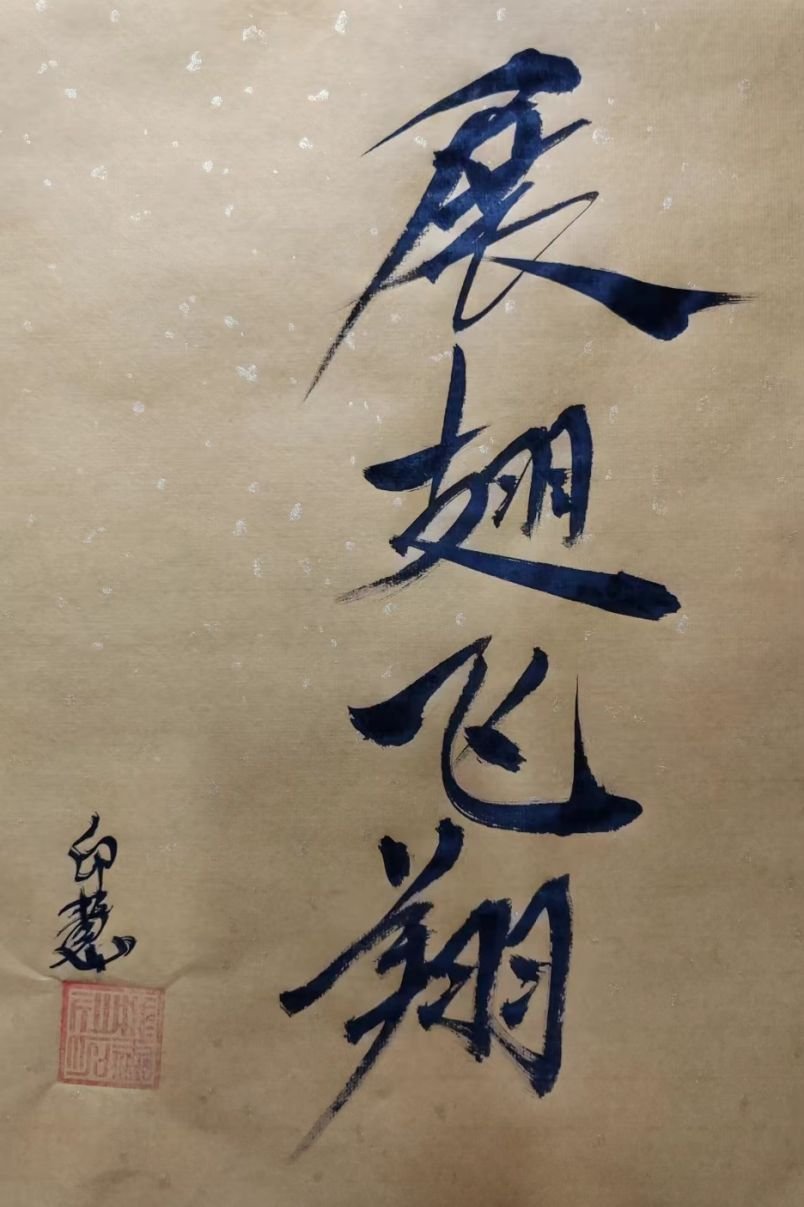 展翅飞翔
印慧